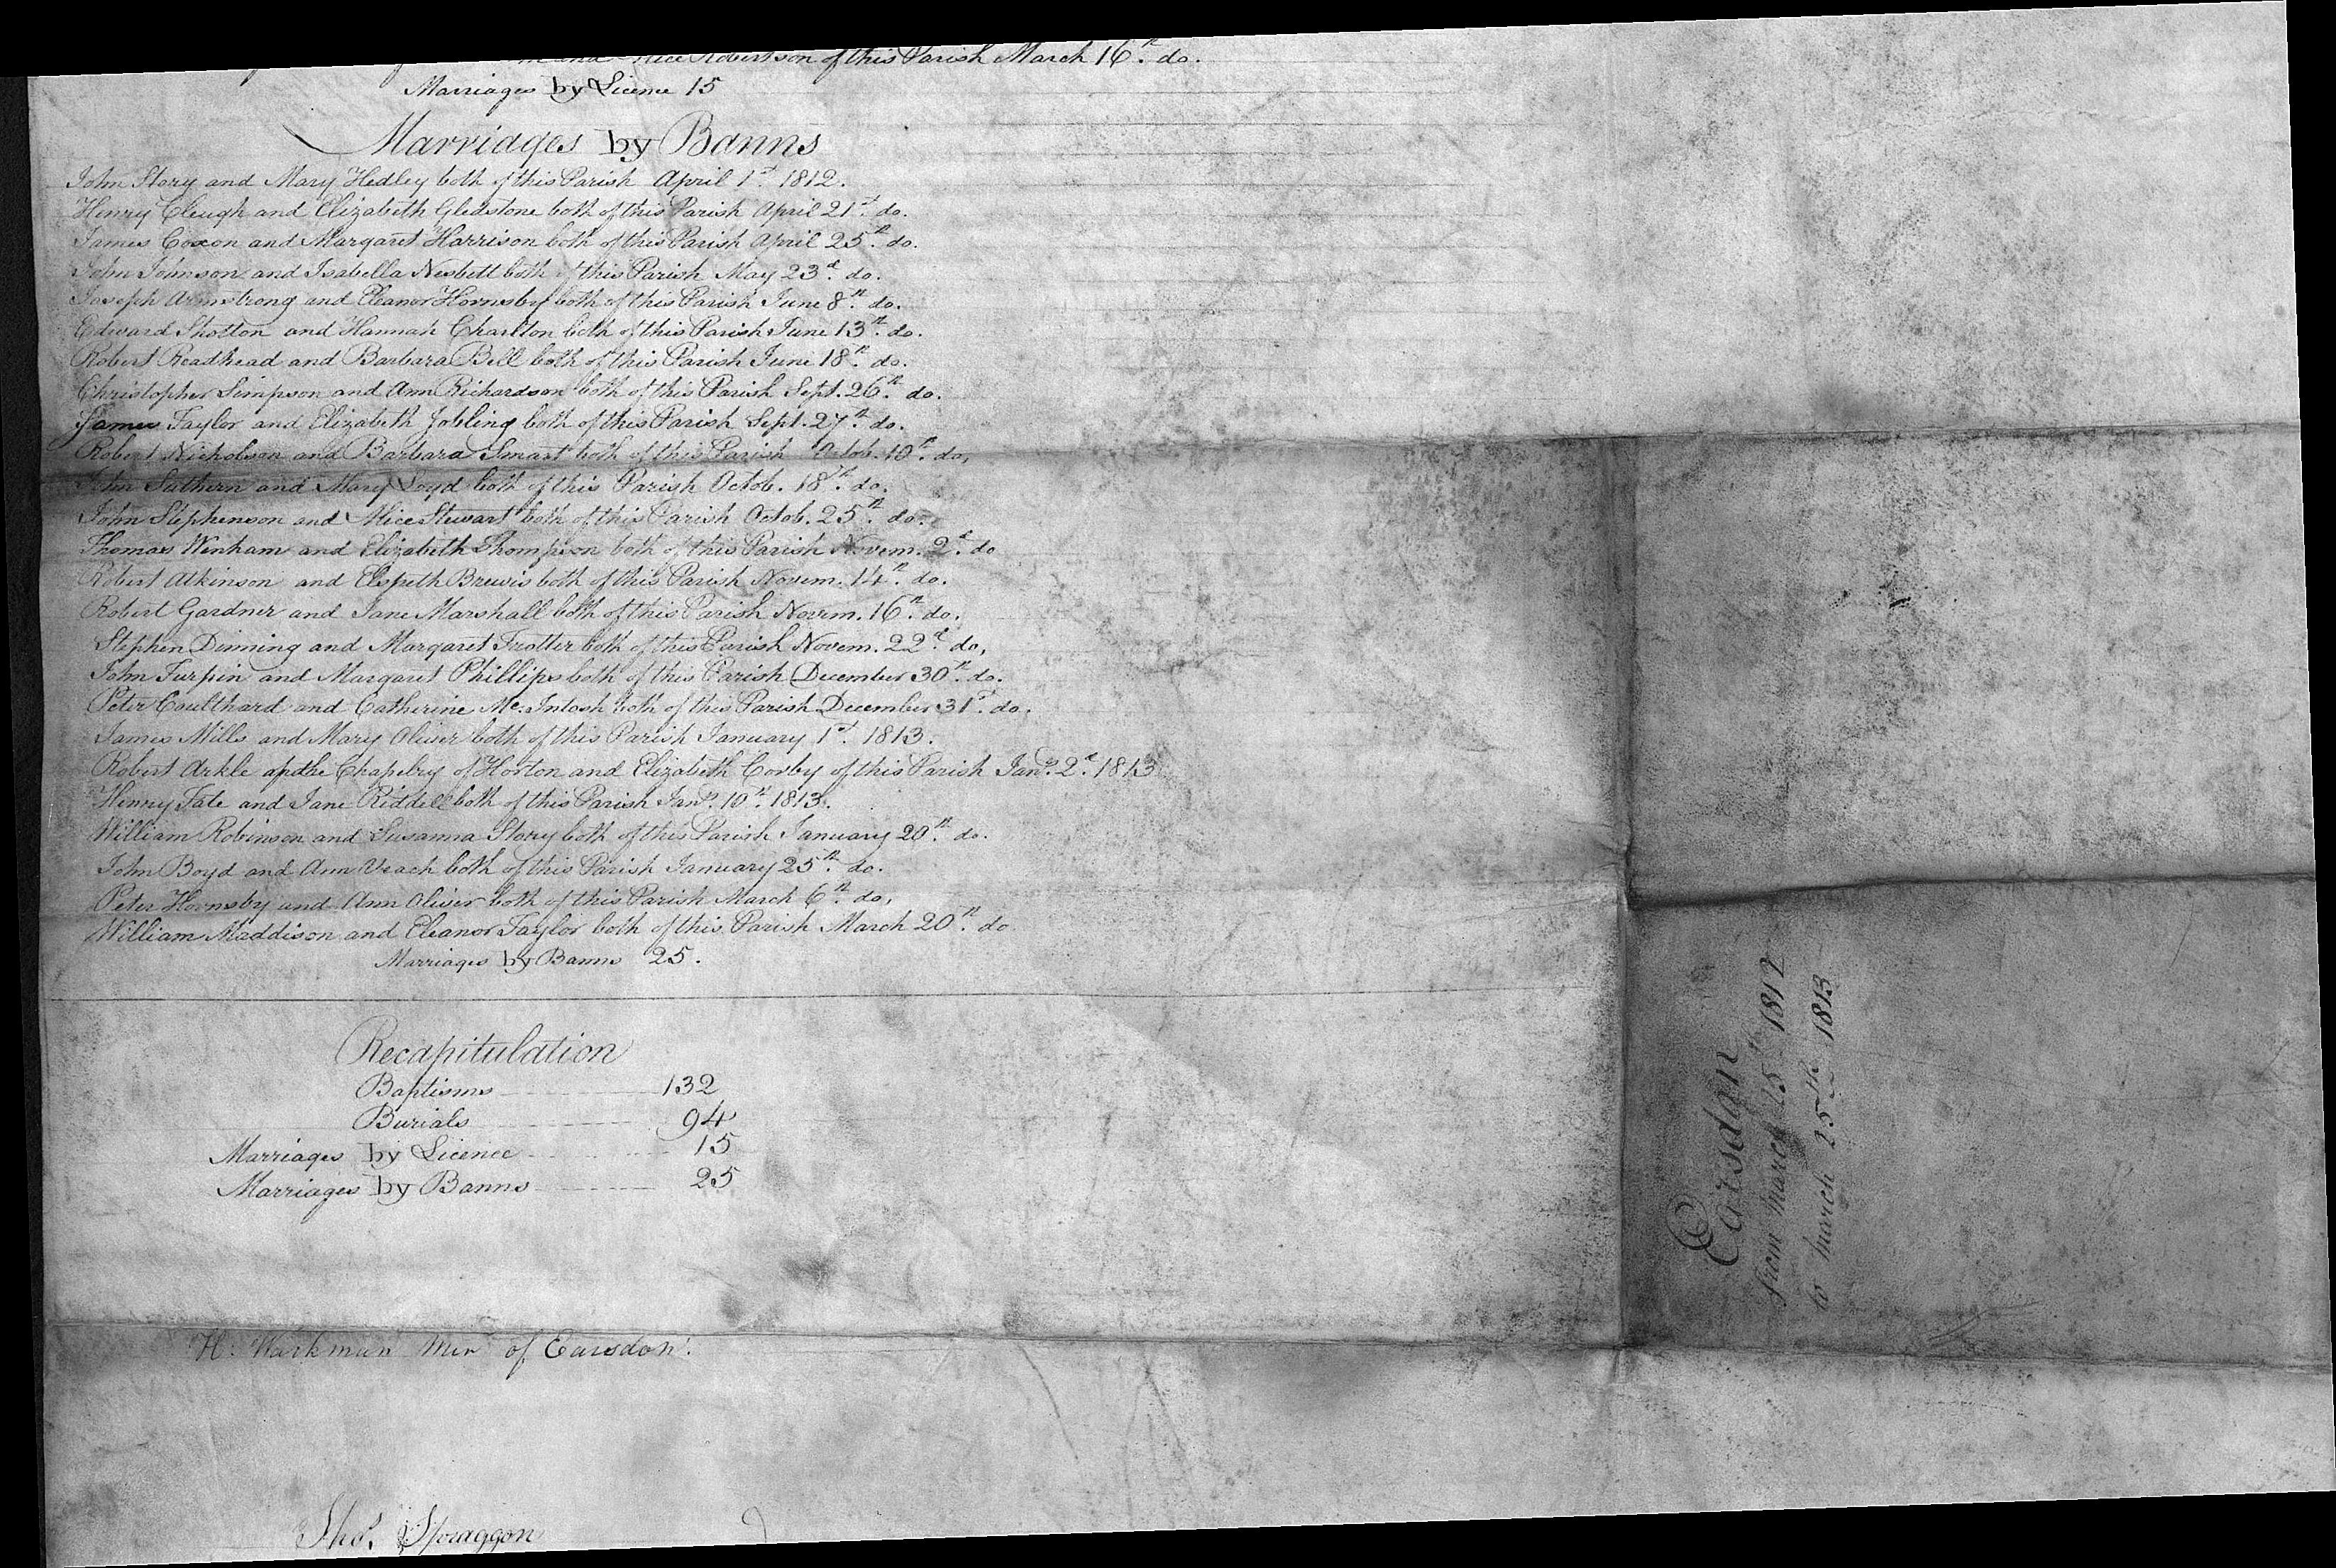 and Alice Robertson of this Parish March 16th. do.
Marriages by Licence 15
Marriages by Banns
John Story and Mary Hedley both of this Parish April 1st. 1812.
Henry Cleugh and Elizabeth Gledstone both of this Parish April 21st. do.
James Coxon and Margaret Harrison both of this Parish April 25th. do.
John Johnson and Isabella Nesbett both of this Parish May 23d. do.
Joseph Armstrong and Eleanor Hornsby both of this Parish June 8th. do.
Edward Shotton and Hannah Charlton both of this Parish June 13th. do.
Robert Readhead and Barbara Bell both of this Parish June 18th. do.
Christopher Simpson and Ann Richardson both of this Parish Sept. 26th. do.
James Taylor and Elizabeth Jobling both of this Parish Sept. 27th. do.
Robert Nicholson and Barbara Smart both of this Parish Octob. 10th. do,
John Suthern and Mary Loyd both of this Parish Octob. 18th. do.
John Stephenson and Alice Stewart both of this Parish Octob. 25th. do.
Thomas Winham and Elizabeth Thompson both of this Parish Novem. 2d. do
Robert Atkinson and Elspeth Brewis both of this Parish Novem. 14th. do.
Robert Gardner and Jane Marshall both of this Parish Novem. 16th. do.
Stephen Dinning and Margaret Trotter both of this Parish Novem. 22d. do,
John Turpin and Margaret Phillips both of this Parish December 30th. do.
Peter Coulthard and Catherine Mc.Intosh both of this Parish December 31st. do.
James Mills and Mary Oliver both of this Parish January 1st. 1813.
Robert Arkle of the Chapelry of Horton and Elizabeth Corby of this Parish Jany. 2d. 1813
Henry Tate and Jane Riddell both of this Parish Jany. 10th. 1813.
William Robinson and Susanna Story both of this Parish January 20th. do.
John Boyd and Ann Veach both of this Parish January 25th. do.
Peter Hornsby and Ann Oliver both of this Parish March 6th. do,
William Maddison and Eleanor Taylor both of this Parish March 20th. do
Marriages by Banns 25.
Recapitulation
Baptisms 132
Burials 94
Marriages by Licence 15
Marriages by Banns 25
H. Warkman Minr of Earsdon.
Thos. Spraggon
Earsdon
from March 25th 1812
to March 25th 1813